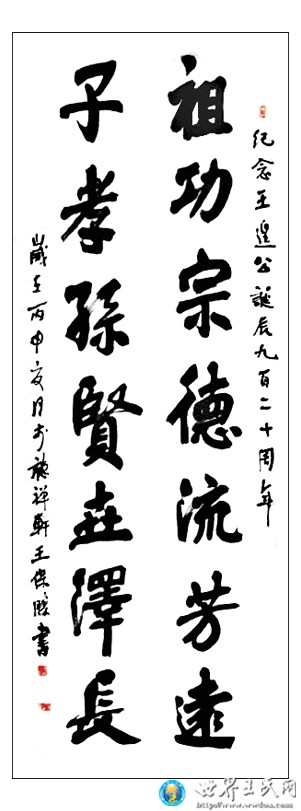 紀念王遑公誕辰九百二十周年
祖功宗德流芳遠
子孝孫賢世澤長
歲在丙申夏月於聽禪軒王保勝書
世界王氏网
www.wwdoa.com